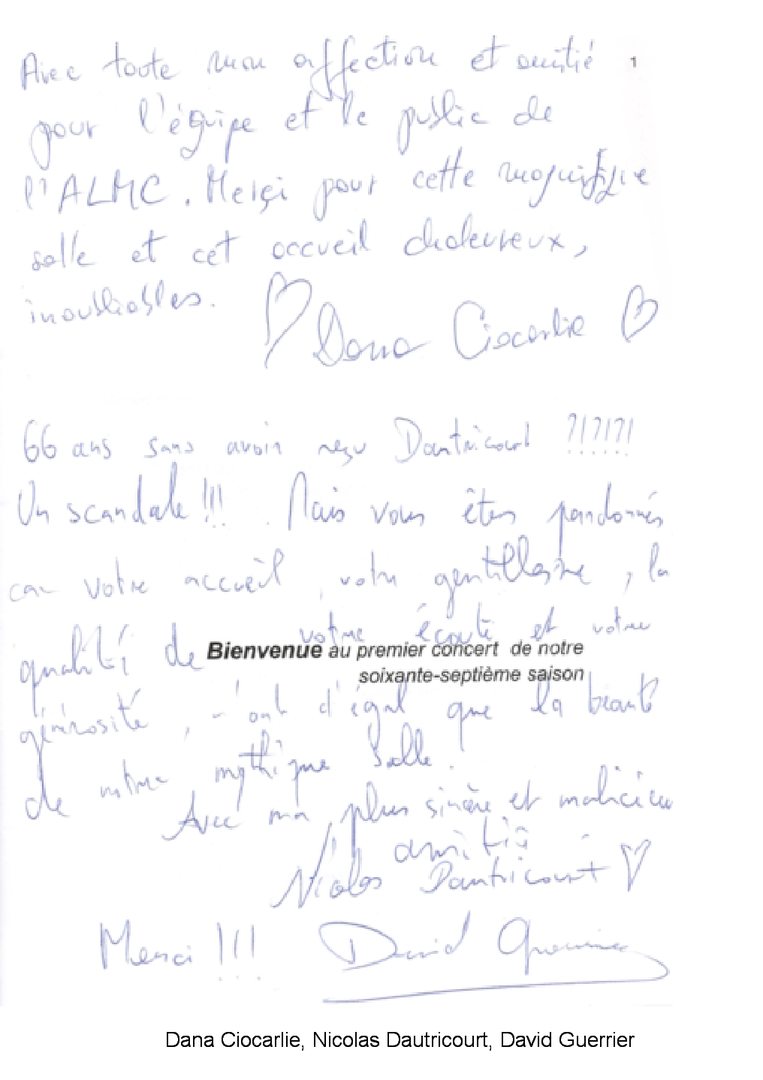 Avec toute mon affection et amitié
1
pour l'équipe et le public de
l'ALMC. Merçi pour cette magnifique
salle et cet accueil chaleureux,
inoubliables.
Dana Ciocarlie
66 ans sans avoir reçu Dautricourt ?!?!?!
Un scandale !!! Mais vous êtes pardonnés
car votre accueil, votre gentillesse, la
qualité de votre écoute et votre
Bienvenue au premier concert de notre
soixante-septième saison
générosité, n'ont d'égal que la beauté
de votre mythique Salle.
Avec ma plus sincère et malicieuse
amitié
Nicolas Dautricourt
Merci !!! David Guerrier
Dana Ciocarlie, Nicolas Dautricourt, David Guerrier